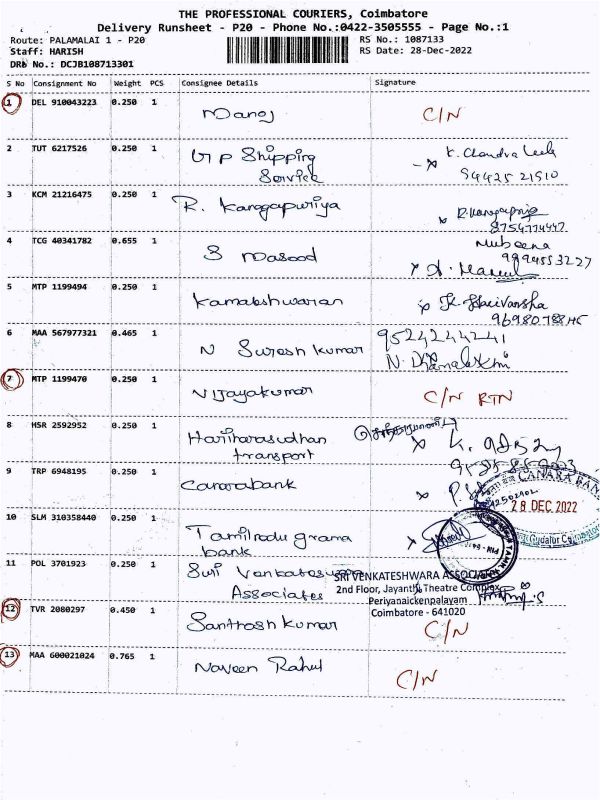 THE PROFESSIONAL COURIERS, Coimbatore
Delivery Runsheet - P20 - Phone No.:0422-3505555 - Page No.:1
Route: PALAMALAI 1 - P20 RS No.: 1087133
Staff: HARISH RS Date: 28-Dec-2022
DRB No.: DCJB108713301
S No Consignment No Weight PCS Consignee Details Signature
1 DEL 910043223 0.250 1 Manoj C/N
2 TUT 6217526 0.250 1 GTP Shipping Service K. Chandra Leela
94425 21510
3 KCM 21216475 0.250 1 R. Kangapuriya
8754774447
4 TCG 40341782 0.655 1 S Masood Mubeena
9994553227
5 MTP 1199494 0.250 1 Kamaleshwaran K. Harivarsha
6 MAA 567977321 0.465 1 N Suresh kumar 9524244241
N. Dhanalaxmi
7 MTP 1199470 0.250 1 Vijayakumar C/N RTN
8 MSR 2592952 0.250 1 Hariharasudhan
transport
9 TRP 6948195 0.250 1 Canarabank
CANARA BANK
28 DEC 2022
Gudalur
10 SLM 310358440 0.250 1 Tamilnadu grama
bank
11 POL 3701923 0.250 1 Sri Venkateswara
Associates
SRI VENKATESHWARA ASSOCIATES
2nd Floor, Jayanthi Theatre Complex
Periyanaickenpalayam
Coimbatore - 641020
12 TVR 2080297 0.450 1 Santhosh kumar C/N
13 MAA 600021024 0.765 1 Naveen Rahul C/N